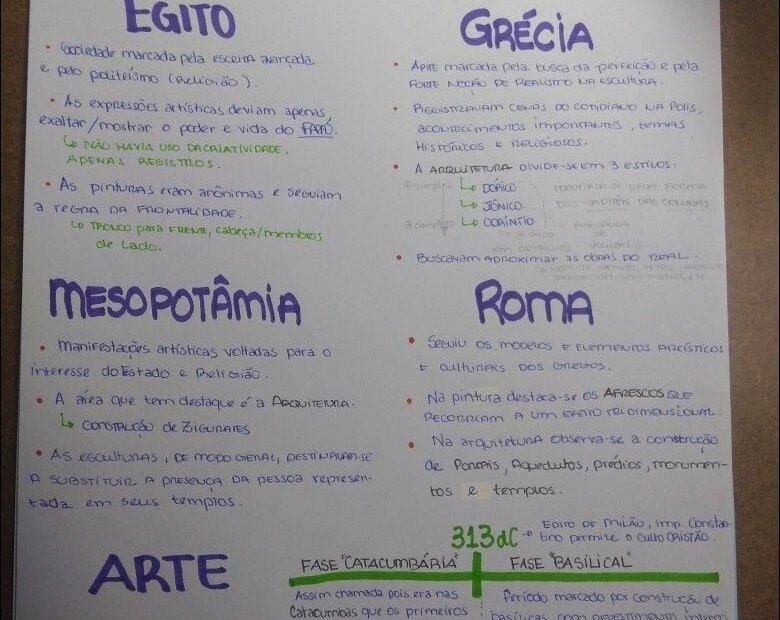 EGITO
• Sociedade marcada pela escrita avançada
e pelo politeísmo (Religião).
• As expressões artísticas deviam apenas
exaltar/mostrar o poder e vida do FARAÓ.
↳ NÃO HAVIA USO DA CRIATIVIDADE.
APENAS REGISTROS.
• As pinturas eram anônimas e seguiam
a regra da FRONTALIDADE.
↳ TRONCO para FRENTE, cabeça/membros
de Lado.
GRÉCIA
• ARTE marcada pela busca da perfeição e pela
FORTE NOÇÃO DE REALISMO NA ESCULTURA.
• REGISTRAVAM CENAS DO COTIDIANO NA PÓLIS,
ACONTECIMENTOS IMPORTANTES, TEMAS
HISTÓRICOS E RELIGIOSOS.
• A ARQUITETURA DIVIDE-SE EM 3 ESTILOS:
+ simples ↳ DÓRICO
↳ JÔNICO DAS COLUNAS
+ complexo ↳ CORÍNTIO
• Buscavam aproximar as obras do REAL.
MESOPOTÂMIA
• Manifestações artísticas voltadas para o
interesse do Estado e Religião.
• A área que tem destaque é a ARQUITETURA.
↳ CONSTRUÇÃO de ZIGURATES
• AS ESCULTURAS, DE MODO GERAL, DESTINAVAM-SE
A SUBSTITUIR A PRESENÇA DA PESSOA REPRESEN-
tada em seus templos.
ROMA
• SEGUIU OS MODELOS E ELEMENTOS ARTÍSTICOS
E CULTURAIS DOS GREGOS.
• Na pintura destaca-se os AFRESCOS QUE
RECORRIAM A UM EFEITO TRIDIMENSIONAL.
• Na arquitetura observa-se a construção
de PORTAIS, Aquedutos, prédios, monumen-
tos e templos.
ARTE
313dC → EDITO DE MILÃO, imp. Constan-
tino permite o culto CRISTÃO.
FASE "CATACUMBÁRIA" FASE "BASILICAL"
Assim chamada pois era nas
Catacumbas que os primeiros
Período marcado por construção de
basílicas com revestimento interno